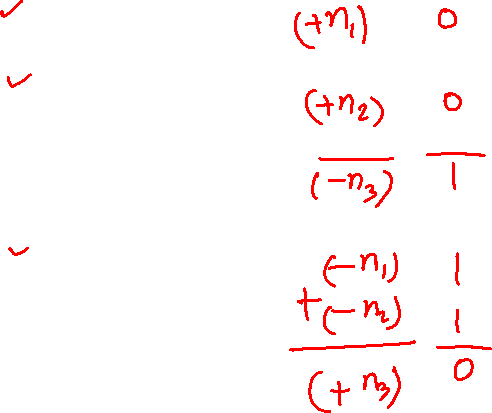 (+n₁) 0
(+n₂) 0
(-n₃) 1
(-n₁) 1
+(-n₂) 1
(+n₃) 0